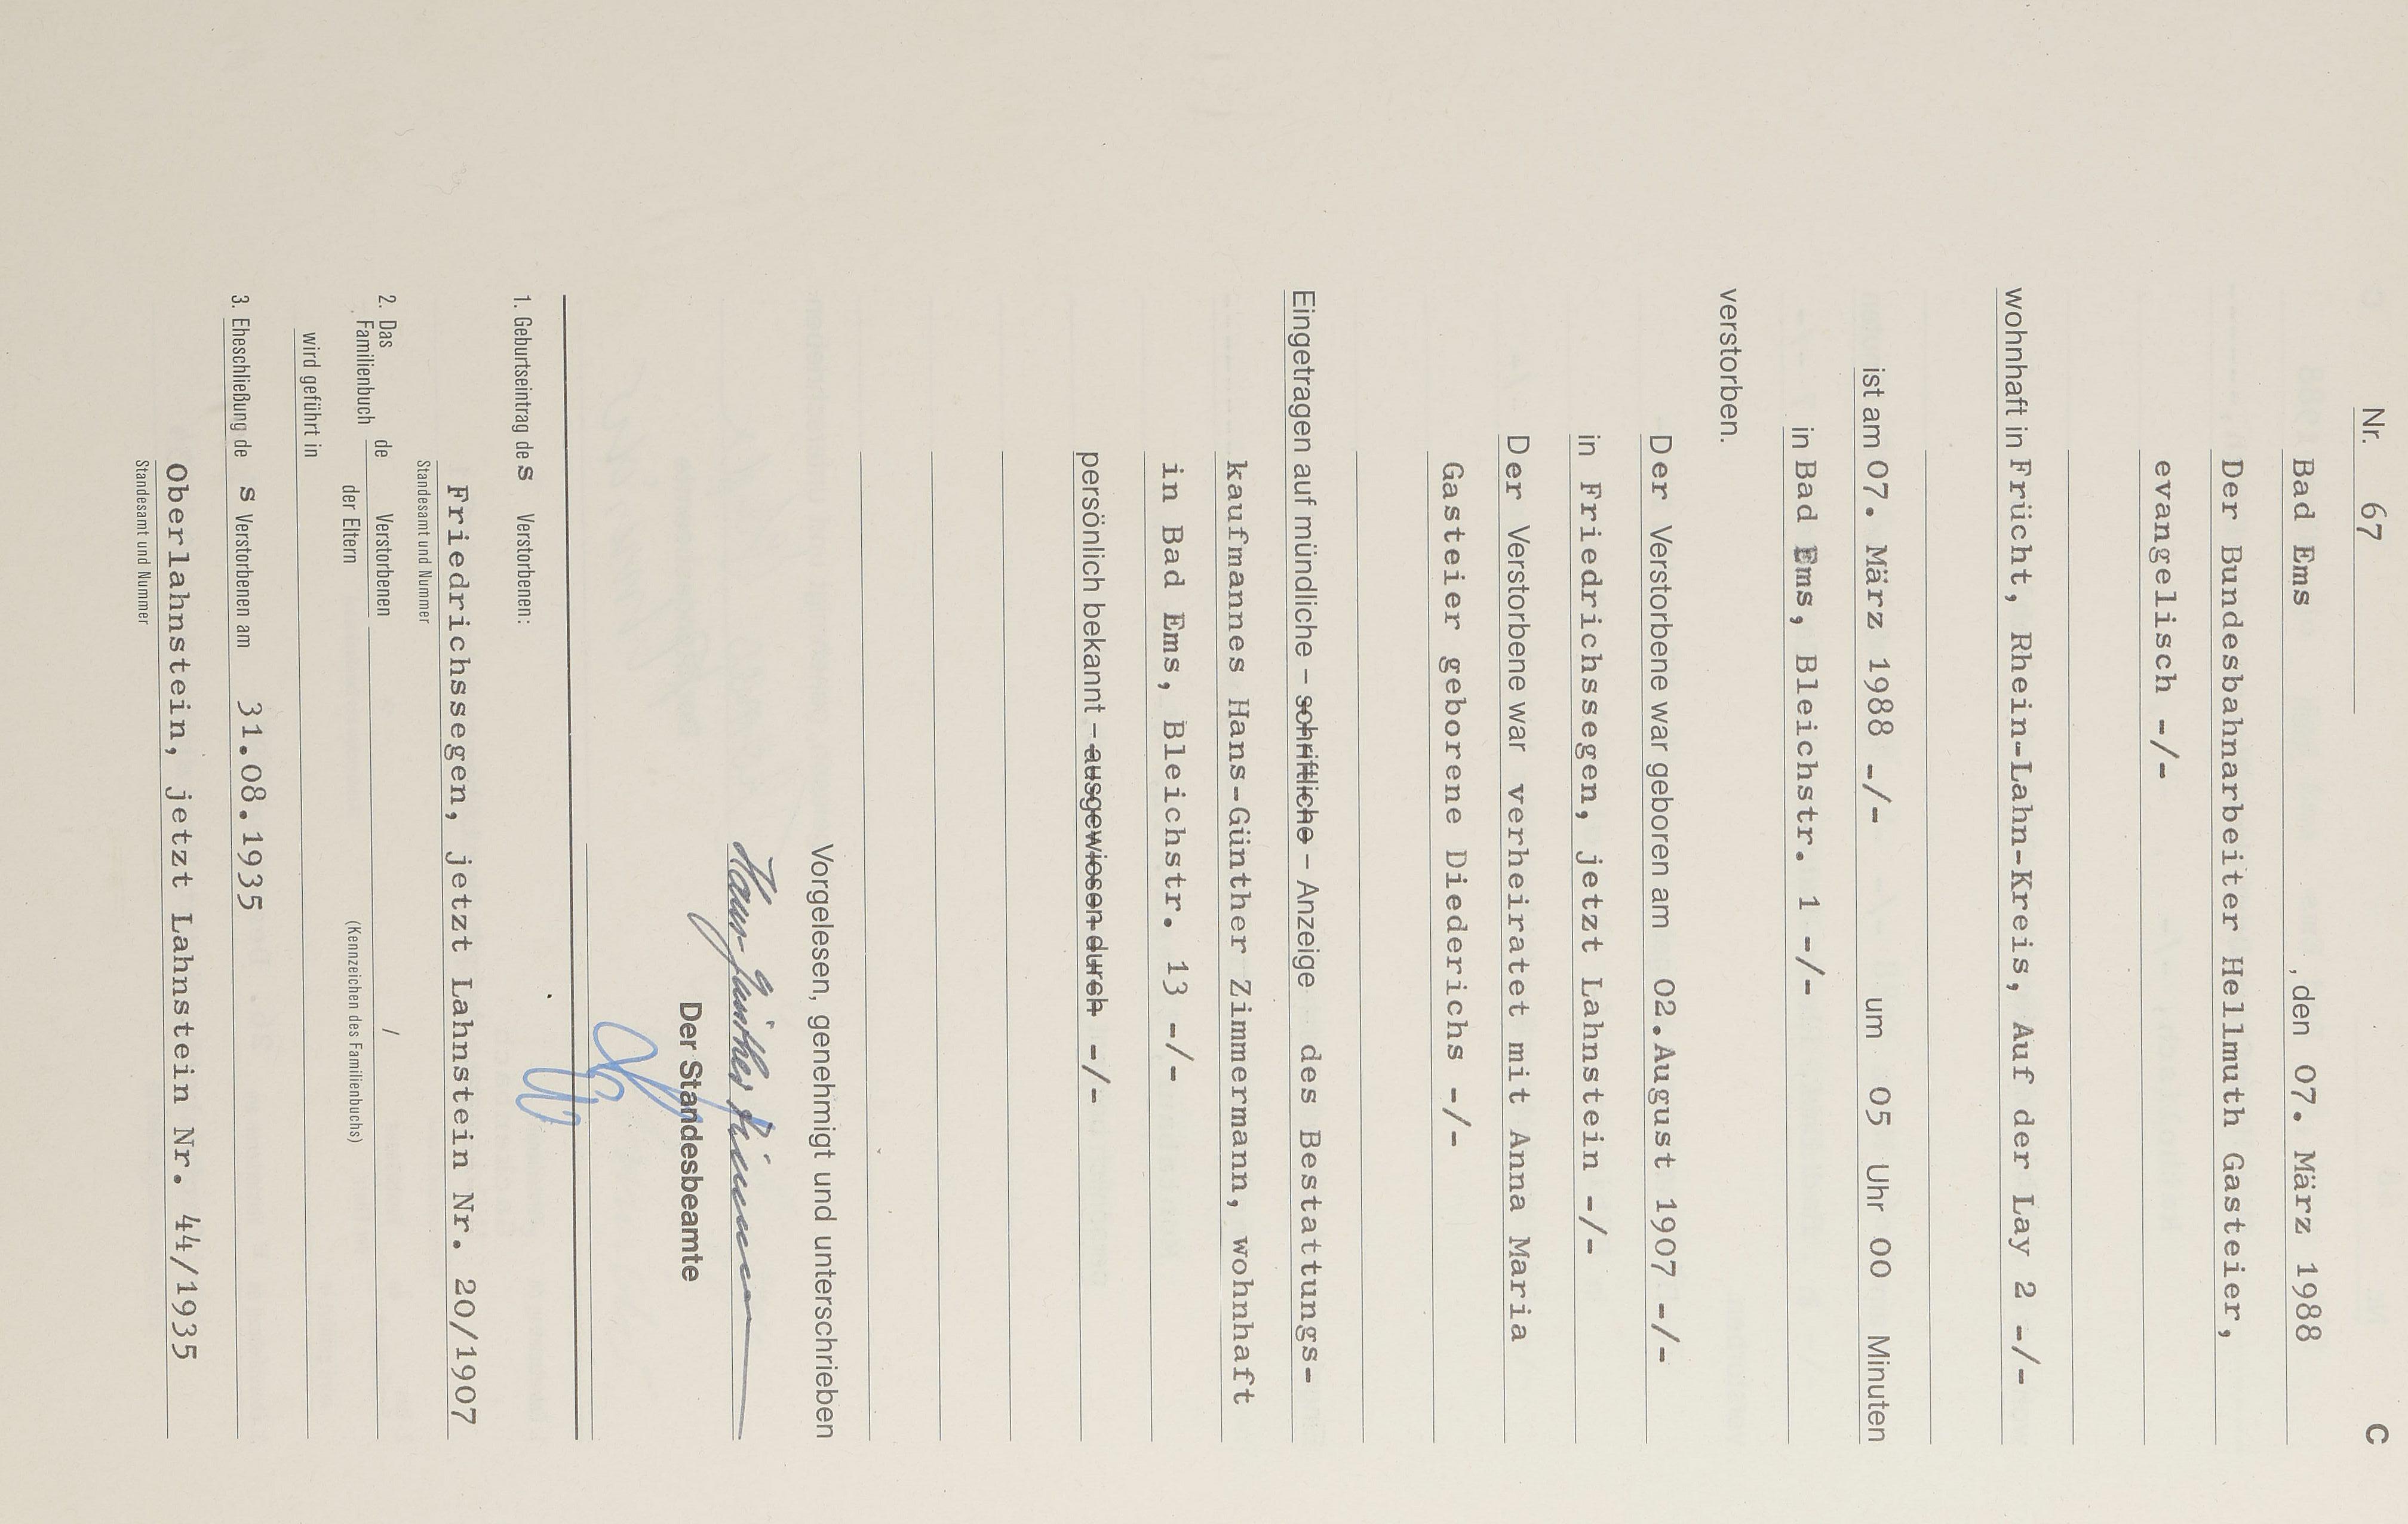 C
Nr. 67
Bad Ems , den 07. März 1988
Der Bundesbahnarbeiter Hellmuth Gasteier,
evangelisch -/-
wohnhaft in Frücht, Rhein-Lahn-Kreis, Auf der Lay 2 -/-
ist am 07. März 1988 -/- um 05 Uhr 00 Minuten
in Bad Ems, Bleichstr. 1 -/-
verstorben.
Der Verstorbene war geboren am 02.August 1907 -/-
in Friedrichssegen, jetzt Lahnstein -/-
Der Verstorbene war verheiratet mit Anna Maria
Gasteier geborene Diederichs -/-
Eingetragen auf mündliche – schriftliche – Anzeige des Bestattungs-
kaufmannes Hans-Günther Zimmermann, wohnhaft
in Bad Ems, Bleichstr. 13 -/-
persönlich bekannt – ausgewiesen durch -/-
Vorgelesen, genehmigt und unterschrieben
Hans-Günther Zimmermann
Der Standesbeamte
1. Geburtseintrag des Verstorbenen:
Friedrichssegen, jetzt Lahnstein Nr. 20/1907
Standesamt und Nummer
2. Das Familienbuch de Verstorbenen / der Eltern
(Kennzeichen des Familienbuchs)
wird geführt in
3. Eheschließung des Verstorbenen am 31.08.1935
Oberlahnstein, jetzt Lahnstein Nr. 44/1935
Standesamt und Nummer